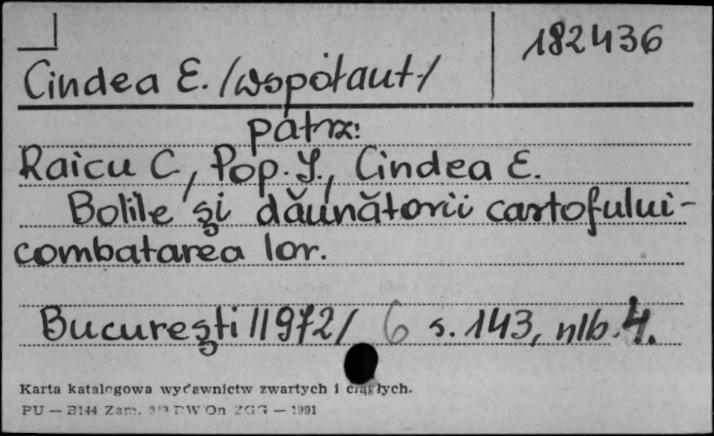 182436
Cindea E. /współaut./
patrz:
Raicu C, Pop. I., Cindea E.
Bolile şi dăunătorii cartofului-
combatarea lor.
Bucureşti /1972/ 6 s. 143, nlb. 4.
Karta katalogowa wydawnictw zwartych i ciągłych.
PU — B144 Zam. DW On ZGG — 1991